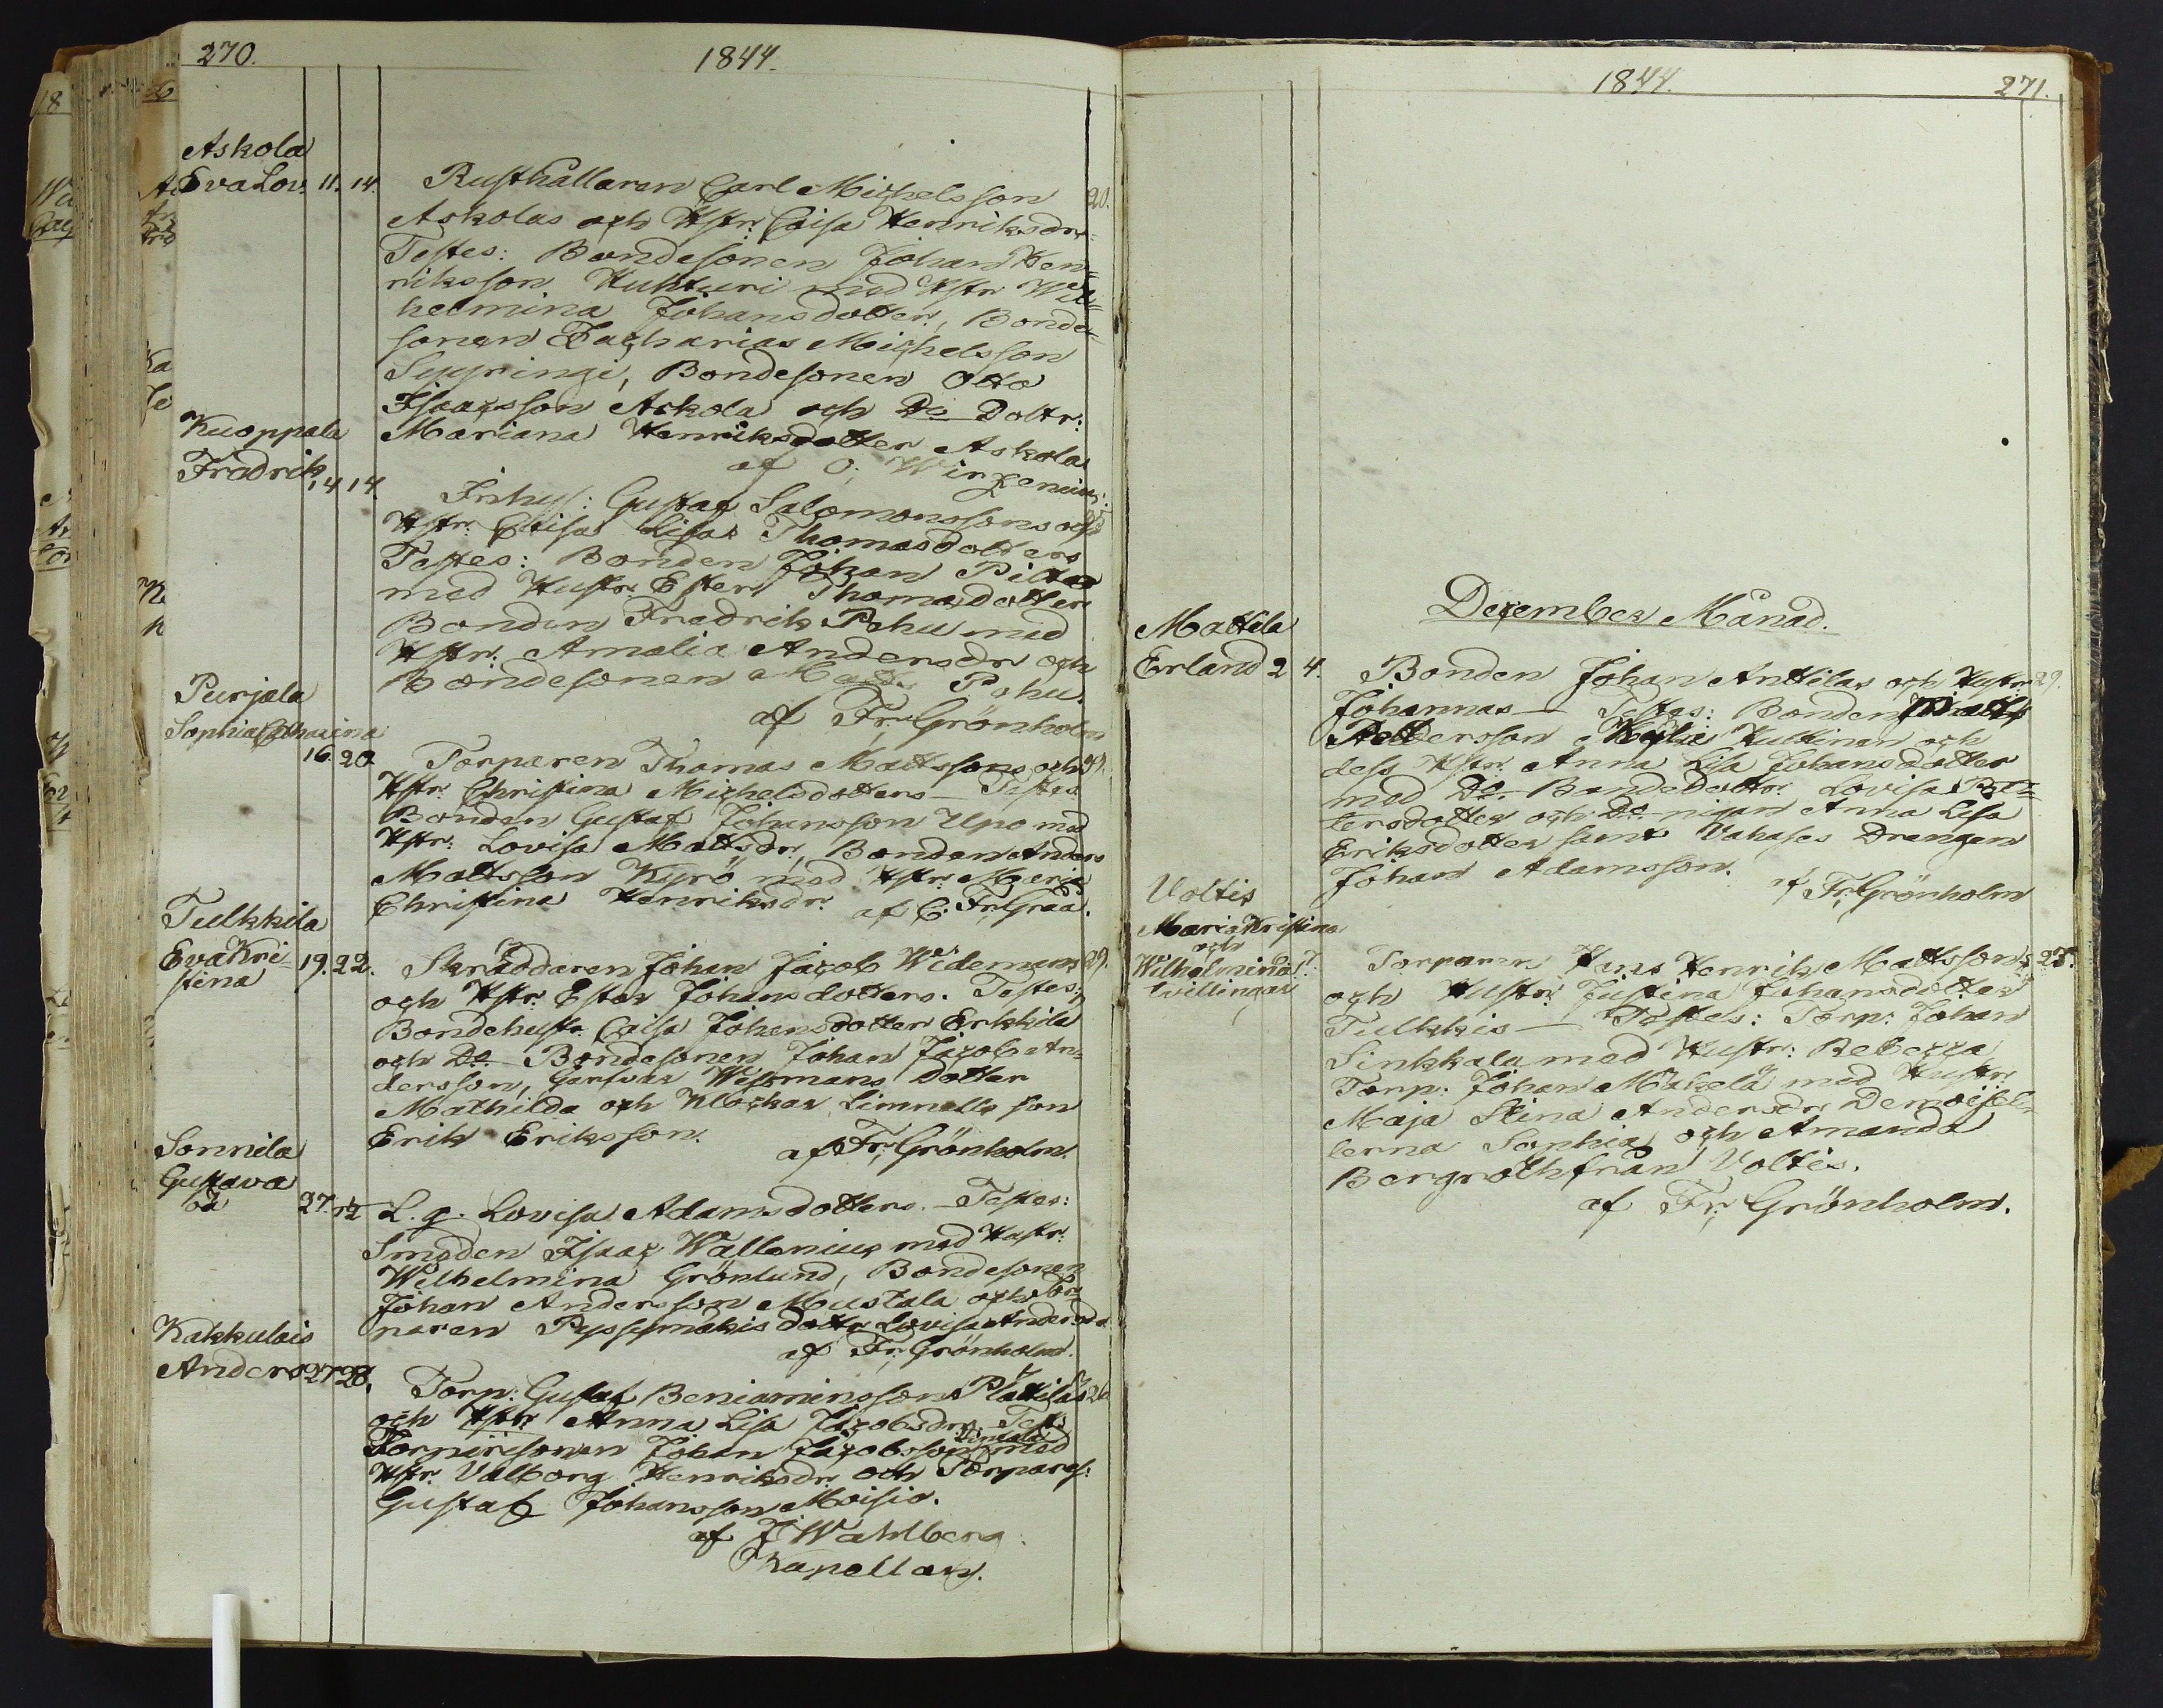 270.
1844.
Askola
Eva Lov. 11. 14. Rusthållaren Carl Michelsson 20.
Askolas och Hstr. Caisa Henriksdrs
Testes: Bondesonen Johan Hen=
riksson Kuhturi med Hstr Wil=
helmina Johansdotter, Bonde=
sonen Zacharias Michelsson
Sypringi, Bondesonen Otto
Isaacsson Askola och Do Doltr:
Mariana Henriksdotter Askola
af O. Wirzenius.
Kuoppala
Fredrik 14 14. Inhys: Gustaf Salomonssons och
Hstr. Caisa Lisas Thomasdotters
Testes: Bonden Johan Piltar
med Hustr. Ester Thomasdotter
Bonden Fredrik Pohu med
Hstr. Amalia Andersdr och
Bondesonen Matts Pohu.
af Fr. Grönholm
Purjala
Sophia Catharina
16. 20. Torparen Thomas Mattssons och
Hstr. Christina Michelsdotters — Testes
Bonden Gustaf Johansson Upo med
Hstr. Lovisa Mattsdr, Bonden Anders
Mattsson Kyrö med Hstr. Maria
Christina Henriksdr. af C. Fr. Graa.
Tulkkila
Eva Kri=
stina 19. 22. Skräddaren Johan Jacob Widemans 29.
och Hstr. Ester Johansdotters. Testes:
Bondehustr. Caisa Johansdotter Erkkila
och Do Bondesonen Johan Jacob An=
dersson, Garfvar Wessmans Dotter
Mathilda och Klockar Limnells son
Erik Eriksson.
af Fr. Grönholm.
Sonnila
Gustava
oä 27. L. g. Lovisa Adamsdotters. — Testes:
Smeden Isaac Wallenius med Hustr.
Wilhelmina Grönlund, Bondesonen
Johan Andersson Mustala och
naren Pyssymäkis dottr Lovisa Andersdr
af Fr. Grönholm.
Kakkulais
Anders 27 28. Torp: Gustaf Benjaminssons Plättiläs 26
och Hstr Anna Lisa Jacobsdrs. Test:
Torparesonen Johan Jacobsson med
Hstr. Valborg Henriksdr och Torpares:
Gustaf Johansson Moisio.
af J. Wahlberg
Kapellan.
1844.
271.
December Månad.
Mattila
Erland 2 4. Bonden Johan Anttilas och Hustr 29.
Johannas — Testes: Bonden Matts
Pettersson Kylä Kuttinen och
dess Hstr. Anna Lisa Johansdotter
med Do Bondedottr. Lovisa Pet=
tersdotter och Do pigan Anna Lisa
Eriksdotter samt Vahases Drengen
Johan Adamsson.
af Fr. Grönholm
Voltis
Maria Kristina
och
Wilhelmina
tvillingar
Torparen Hans Henrik Mattssons 25.
och Hustr. Justina Johansdotter
Tulkkis — Testes: Torp: Johan
Sinkkala med Hustr: Rebecca
Torp: Johan Mäkelä med Hustr
Maja Stina Andersdr Demoisel=
lerna Sophia och Amanda
Bergroth från Voltis.
af Fr. Grönholm.